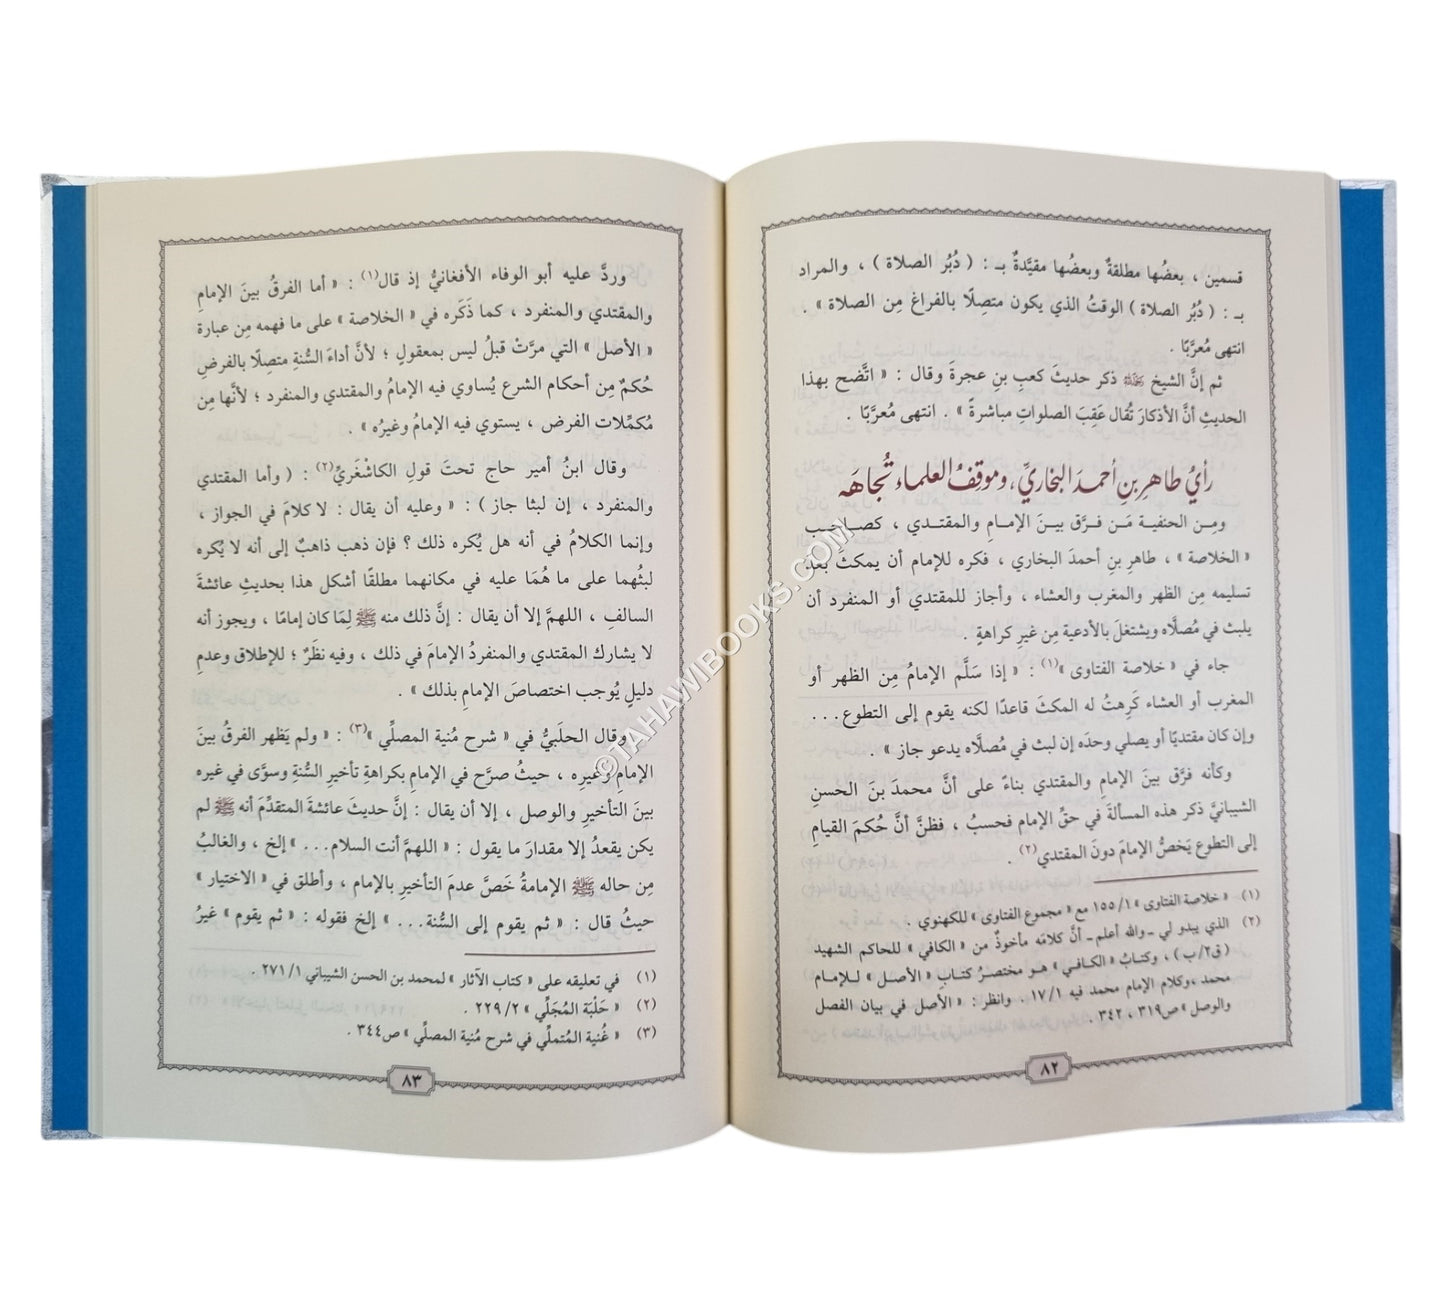 قسمين ، بعضُها مطلقةٌ وبعضُها مقيَّدةٌ بـ : ( دُبُر الصلاة ) ، والمراد
بـ : ( دُبُر الصلاة ) الوقتُ الذي يكون متصِلًا بالفراغ مِن الصلاة » .
انتهى مُعرَّبًا .
ثم إنَّ الشيخ ذكر حديثَ كعبِ بنِ عجرةَ وقال : « اتَّضح بهذا
الحديثِ أنَّ الأذكارَ تُقال عَقِبَ الصلواتِ مباشرةً » . انتهى مُعرَّبًا .
رأيُ طاهرِ بنِ أحمدَ البخاريِّ، وموقفُ العلماء تُجاهَه
ومِن الحنفية مَن فرَّق بينَ الإمامِ والمقتدي ، كصاحِبِ
« الخلاصة » ، طاهرِ بنِ أحمدَ البخاري ، فكره للإمام أن يمكثَ بعدَ
تسليمه مِن الظهر والمغرب والعشاء ، وأجاز للمقتدي أو المنفرد أن
يلبث في مُصلَّاه ويشتغلَ بالأدعية مِن غيرِ كراهةٍ .
جاء في « خلاصة الفتاوى »(١) : « إذا سَلَّم الإمامُ مِن الظهر أو
المغرب أو العشاء كَرِهتُ له المكثَ قاعدًا لكنه يقوم إلى التطوع...
وإن كان مقتديًا أو يصلي وحدَه إن لبث في مُصلَّاه يدعو جاز » .
وكأنه فرَّق بينَ الإمامِ والمقتدي بناءً على أنَّ محمدَ بنَ الحسنِ
الشيبانيَّ ذكر هذه المسألةَ في حقِّ الإمام فحسبُ ، فظنَّ أنَّ حُكمَ القيامِ
إلى التطوع يَخصُّ الإمامَ دونَ المقتدي(٢) .
(١) « خلاصة الفتاوى » ١٥٥/١ مع « مجموع الفتاوى » للكهنوي .
(٢) الذي يبدو لي ـ والله أعلم ـ أنَّ كلامَه مأخوذٌ من « الكافي » للحاكم الشهيد
(ق٢/ب) ، وكتابُ « الكافي » هو مختصرُ كتابِ « الأصل » للإمام
محمد ، وكلام الإمام محمد فيه ١٧/١ . وانظر : « الأصل في بيان الفصل
والوصل » ص٣١٩ ، ٣٤٢ .
٨٢
وردَّ عليه أبو الوفاء الأفغانيُّ إذ قال(١) : « أما الفرقُ بينَ الإمامِ
والمقتدي والمنفرد ، كما ذَكَره في « الخلاصة » على ما فهمه مِن عبارة
« الأصل » التي مرَّتْ قبلُ ليس بمعقولٍ ؛ لأنَّ أداءَ السُّنةِ متصِلًا بالفرضِ
حُكمٌ مِن أحكام الشرع يُساوي فيه الإمامُ والمقتدي والمنفرد ؛ لأنَّها مِن
مُكمِّلات الفرض ، يستوي فيه الإمامُ وغيرُه » .
وقال ابنُ أمير حاج تحتَ قولِ الكاشْغَريِّ(٢) : ( وأما المقتدي
والمنفرد ، إن لبثا جاز ) : « وعليه أن يقال : لا كلامَ في الجواز ،
وإنما الكلامُ في أنه هل يُكره ذلك ؟ فإن ذهب ذاهبٌ إلى أنه لا يُكره
لبثُهما على ما هُمَا عليه في مكانهما مطلقًا أشكل هذا بحديثِ عائشةَ
السالفِ ، اللهمَّ إلا أن يقال : إنَّ ذلك منه ﷺ لِمَا كان إمامًا ، ويجوز أنه
لا يشارك المقتدي والمنفردُ الإمامَ في ذلك ، وفيه نظَرٌ ؛ للإطلاق وعدمِ
دليلٍ يُوجب اختصاصَ الإمامِ بذلك » .
وقال الحلَبيُّ في « شرح مُنية المصلِّي »(٣) : « ولم يَظهر الفرقُ بينَ
الإمامِ وغيرِه ، حيثُ صرَّح في الإمامِ بكراهةِ تأخيرِ السُّنةِ وسوَّى في غيره
بينَ التأخيرِ والوصل ، إلا أن يقال : إنَّ حديثَ عائشةَ المتقدِّمَ أنه ﷺ لم
يكن يقعدُ إلا مقدارَ ما يقول : « اللهمَّ أنت السلام... » إلخ ، والغالبُ
مِن حاله ﷺ الإمامةُ خَصَّ عدمَ التأخيرِ بالإمام ، وأطلق في « الاختيار »
حيثُ قال : « ثم يقوم إلى السُّنة... » إلخ فقوله : « ثم يقوم » غيرُ
(١) في تعليقه على « كتاب الآثار » لمحمد بن الحسن الشيباني ٢٧١/١ .
(٢) « حَلْبَة المُجَلِّي » ٢٢٩/٢ .
(٣) « غُنية المُتملِّي في شرح مُنية المصلِّي » ص٣٤٤ .
٨٣
©TAHAWIBOOKS.COM